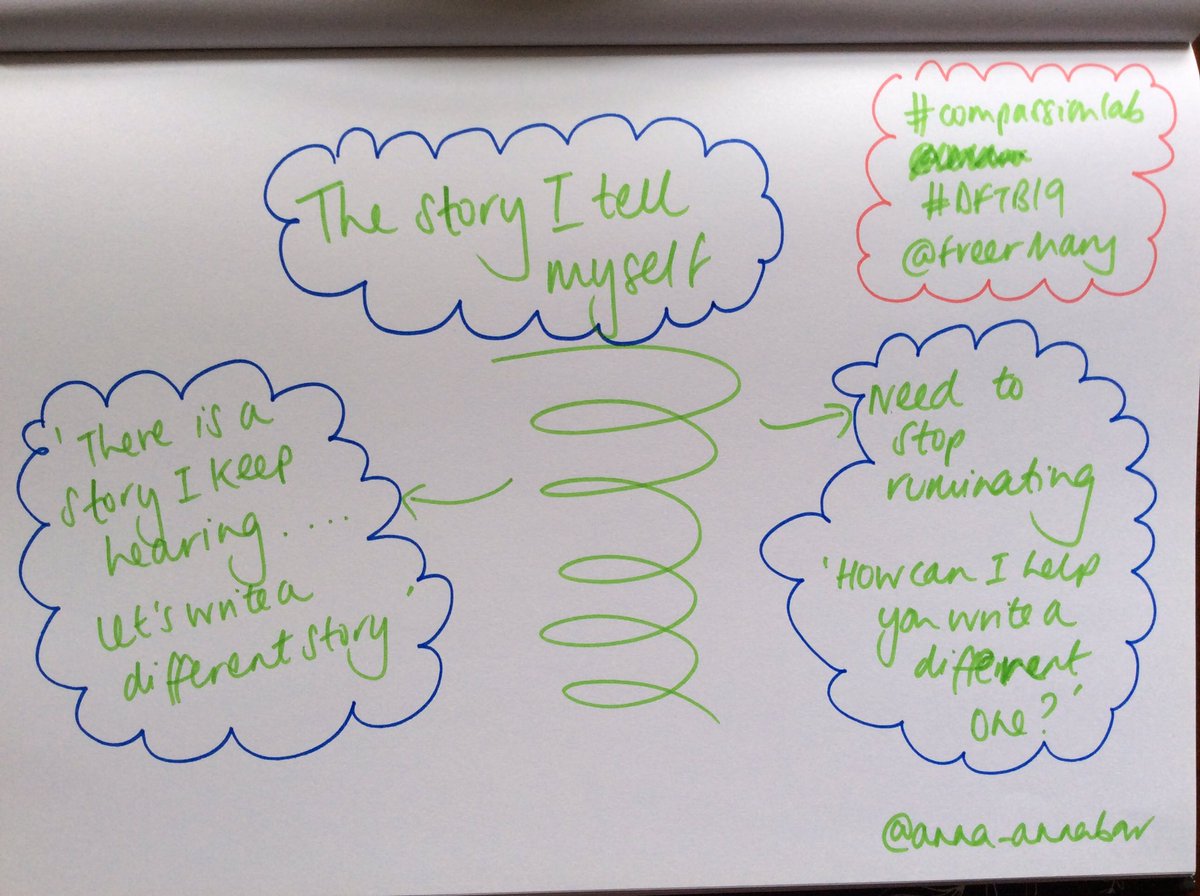 The story I tell
myself
#compassionlab
#DFTB19
@freermary
'There is a
story I keep
hearing.....
Let's write a
different story'
Need to
stop
ruminating
'How can I help
you write a
different
one?'
@anna_annabow